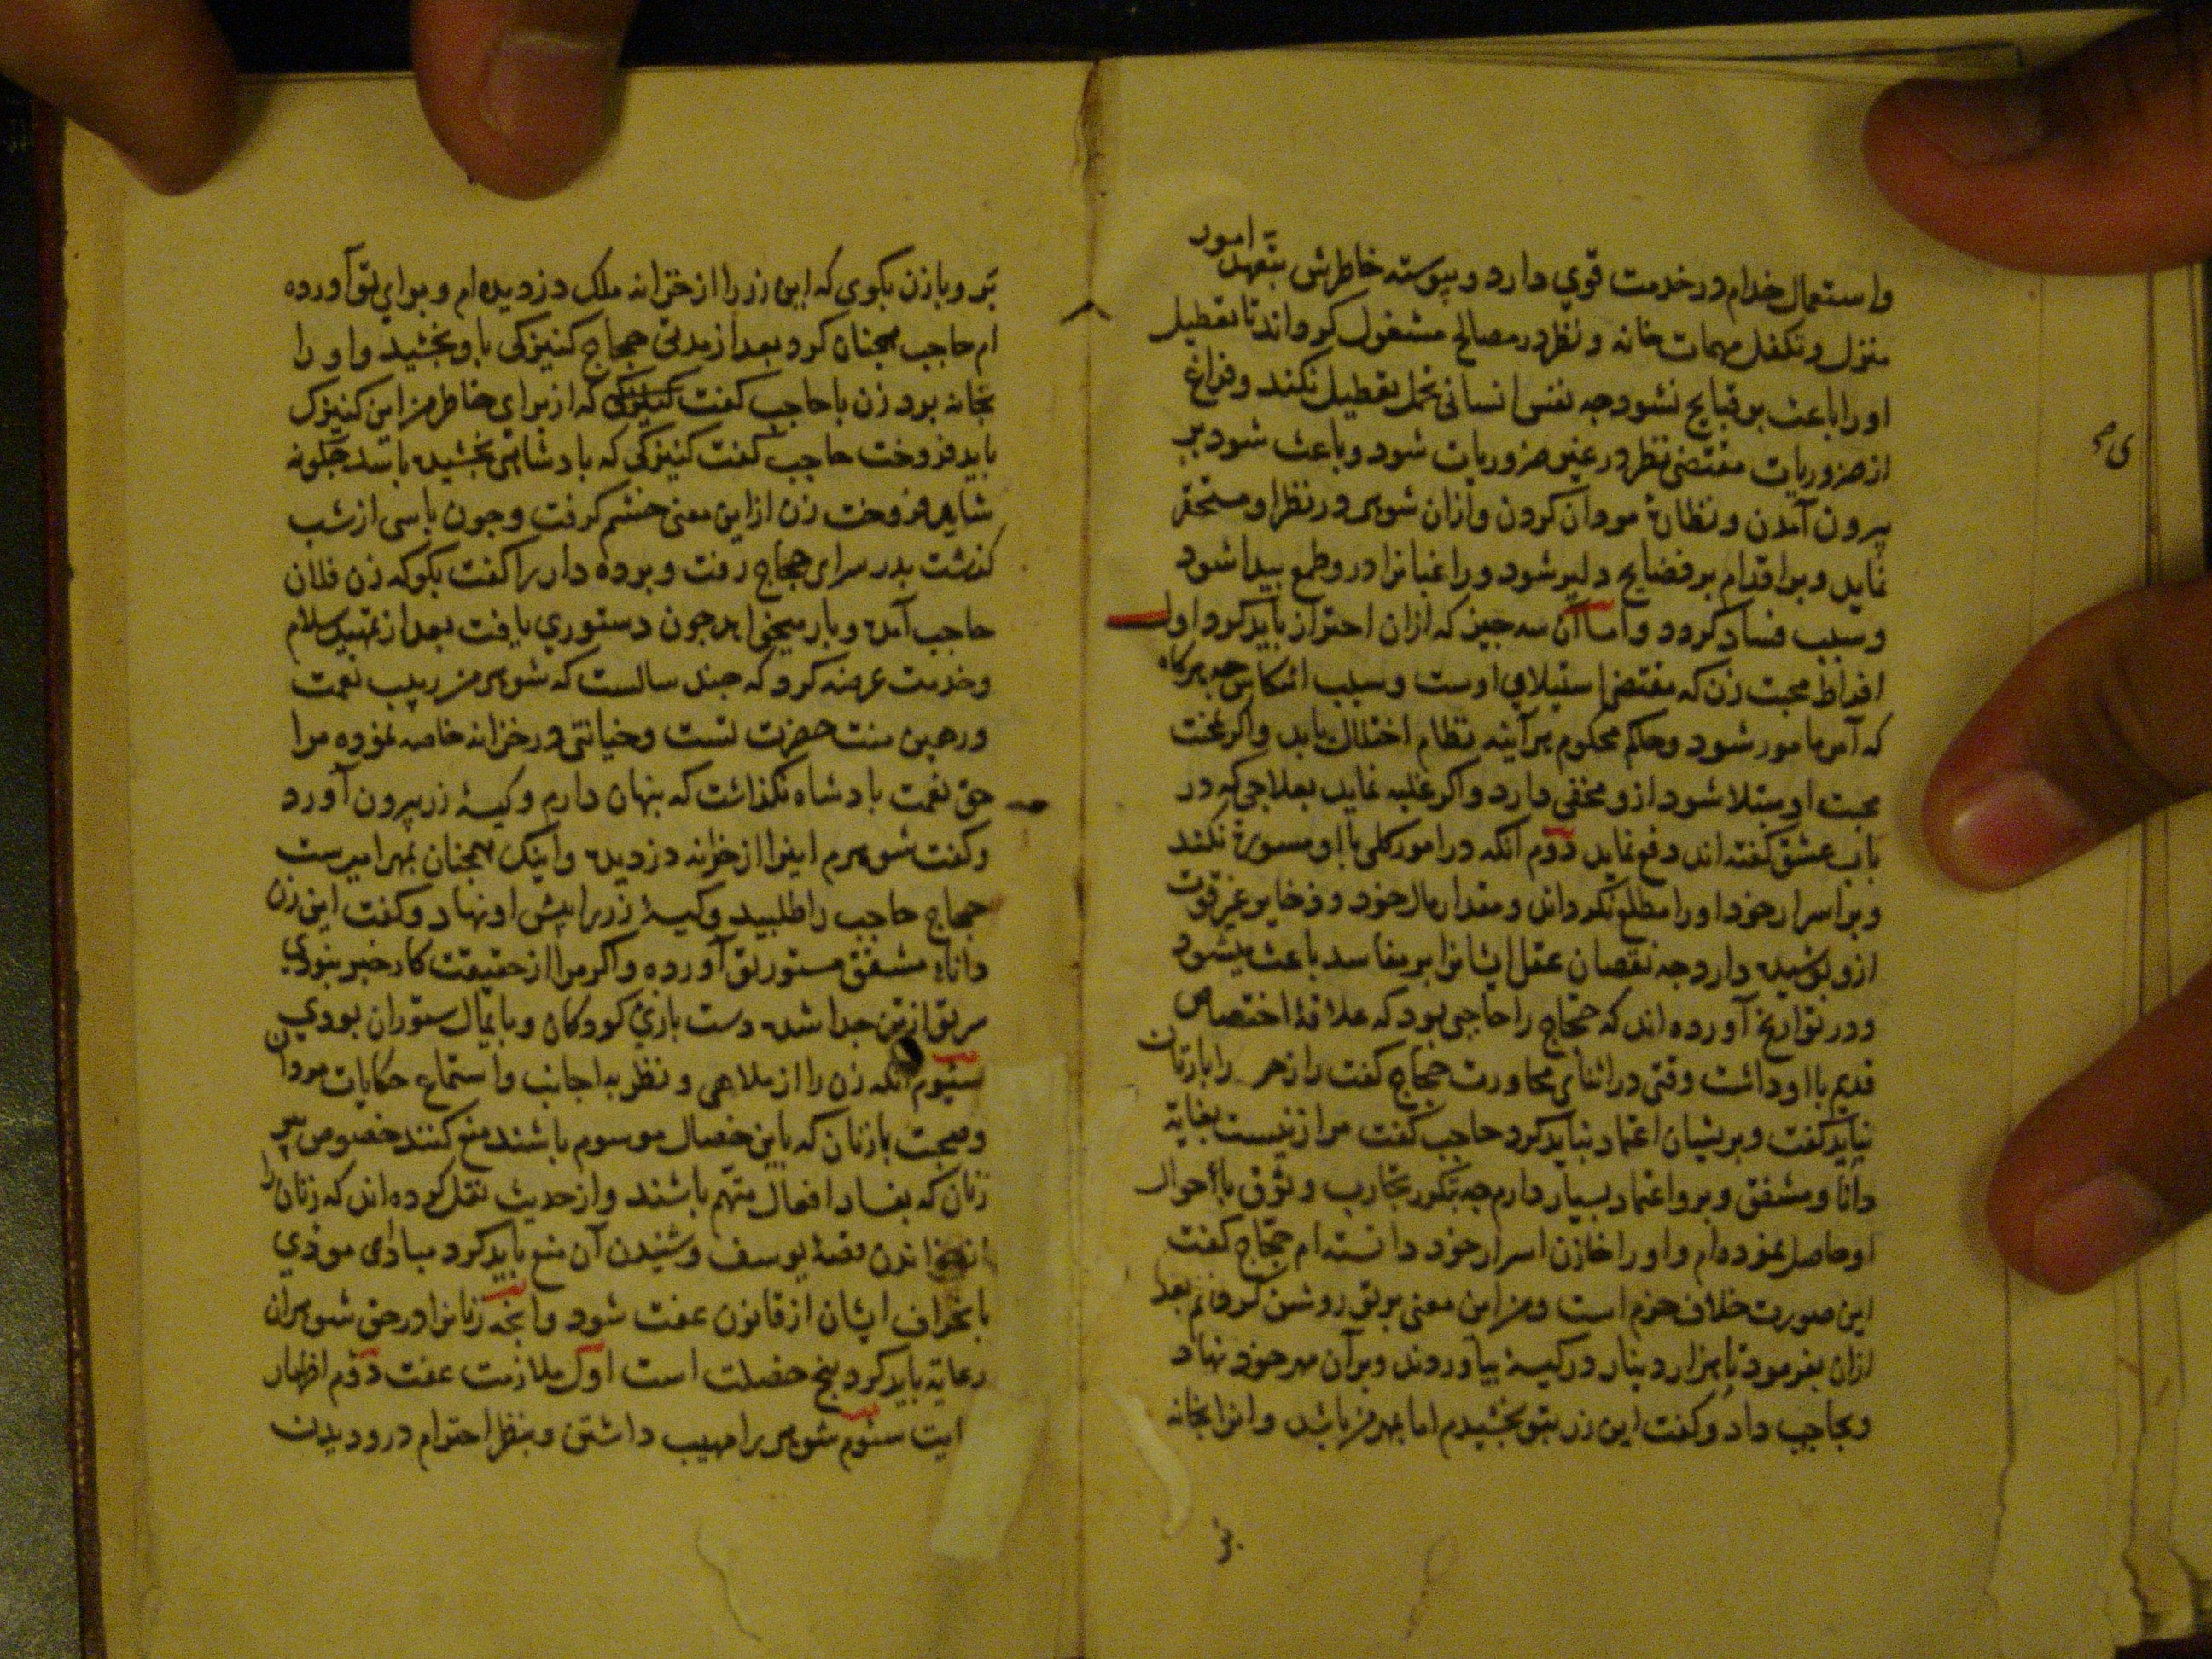 واستعمال خدام در خدمت قوي دارد و پیوسته خاطرش بتعهد امور
منزل و تکفل مهمات خانه و نظر در مصالح مشغول کرداند تا تعطیل
او را باعث بر قبایح نشود چه نفس انسانی تحمل تعطیل نکند و فراغ
از ضروریات مقتضی نظر در غیر ضروریات شود و باعث شود بر
بیرون آمدن و نظارهٔ مردان کردن و ازان شوهر در نظر او مستحقر
نماید و بر اقدام بر فضایح دلیر شود و راغبانرا در و طمع پیدا شود
و سبب فساد کردد و اما آن سه چیز که ازان احتراز باید کرد اول
افراط محبت زن که مقتضی استیلای اوست و سبب انتکاس چه هرکاه
که آمر مامور شود و حاکم محکوم هرآینه نظام اختلال یابد و اکر بمحنت
محبت او مبتلا شود ازو مخفی دارد و اکر غلبه نماید بعلاجی که در
باب عشق کفته اند دفع نماید دوم انکه در امور کلی با او مشورة نکند
و بر اسرار خود او را مطلع نکرداند و مقدار مال خود و ذخایر غیر قوت
ازو پوشیده دارد چه نقصان عقل ایشانرا بر مفاسد باعث میشود
و در تواریخ آورده اند که حجاج را حاجبی بود که علاقهٔ اختصاص
قدیم با او داشت وقتی در اثنای محاورت حجاج کفت راز هر را با زنان
نباید کفت و بریشان اعتماد نباید کرد حاجب کفت مرا زنیست بغایة
دانا و مشفق و برو اعتماد بسیار دارم چه بتکرر تجارب وثوق با احوال
او حاصل نموده ام و او را خازن اسرار خود دانسته ام حجاج کفت
این صورت خلاف حزم است و من این معنی بر تو روشن کردانم بعد
ازان بفرمود تا هزار دینار در کیسهٔ بیاوردند و بر آن مهر خود نهاد
و بحاجب داد و کفت این زر بتو بخشیدم اما بمهر من باشد و انرا بخانه
بَر و با زن بکوی که این زر را از خزانه ملک دزدیده ام و برای تو آورده
ام حاجب همچنان کرد بعد از مدتی حجاج کنیزکی باو بخشید و او را
بخانه بود زن با حاجب کفت که از برای خاطر من این کنیزک
باید فروخت حاجب کفت کنیزکی که بادشاهی بخشیده باشد چکونه
شاید فروخت زن از این معنی خشم کرفت و چون پاسی از شب
کذشت بدر سرای حجاج رفت و پرده دار را کفت بکو که زن فلان
حاجب آمده و بار میخواهد چون دستوري یافت بعد از تمهید سلام
و خدمت عرضه کرد که چند سالست که شوهر من ربیب نعمت
و رهین منت حضرت تست و خیانتی در خزانه خاصه نموده مرا
حق نعمت بادشاه نکذاشت که پنهان دارم و کیسهٔ زر بیرون آورد
و کفت شوهرم اینرا از خزانه دزدیده و اینک همچنان بمهر امیرست
حجاج حاجب را طلبید و کیسهٔ زر را پیش او نهاد و کفت این زن
داناء مشفق مستور تو آورده و اکر مرا از حقیقت کار خبر نبودي
سر تو از تن جدا شده دست بازئ کودکان و پایمال ستوران بودي
سیوم انکه زن را از ملاهی و نظر به اجانب و استماع حکایات مردان
و صحبت با زنان که باین خصال موسوم باشند منع کنند خصوص پیر
زنان که بفساد افعال متهم باشند و از حدیث نقل کرده اند که زنان را
از خواندن قصهٔ یوسف و شنیدن آن منع باید کرد مبادا مودي
بانحراف ایشان از قانون عفت شود و آنچه زنانرا در حق شوهران
رعایة باید کرد پنج خصلت است اول ملازمت عفت دوم اظهار
سیوم شوهر را مهیب داشتن و بنظر احترام درو دیدن